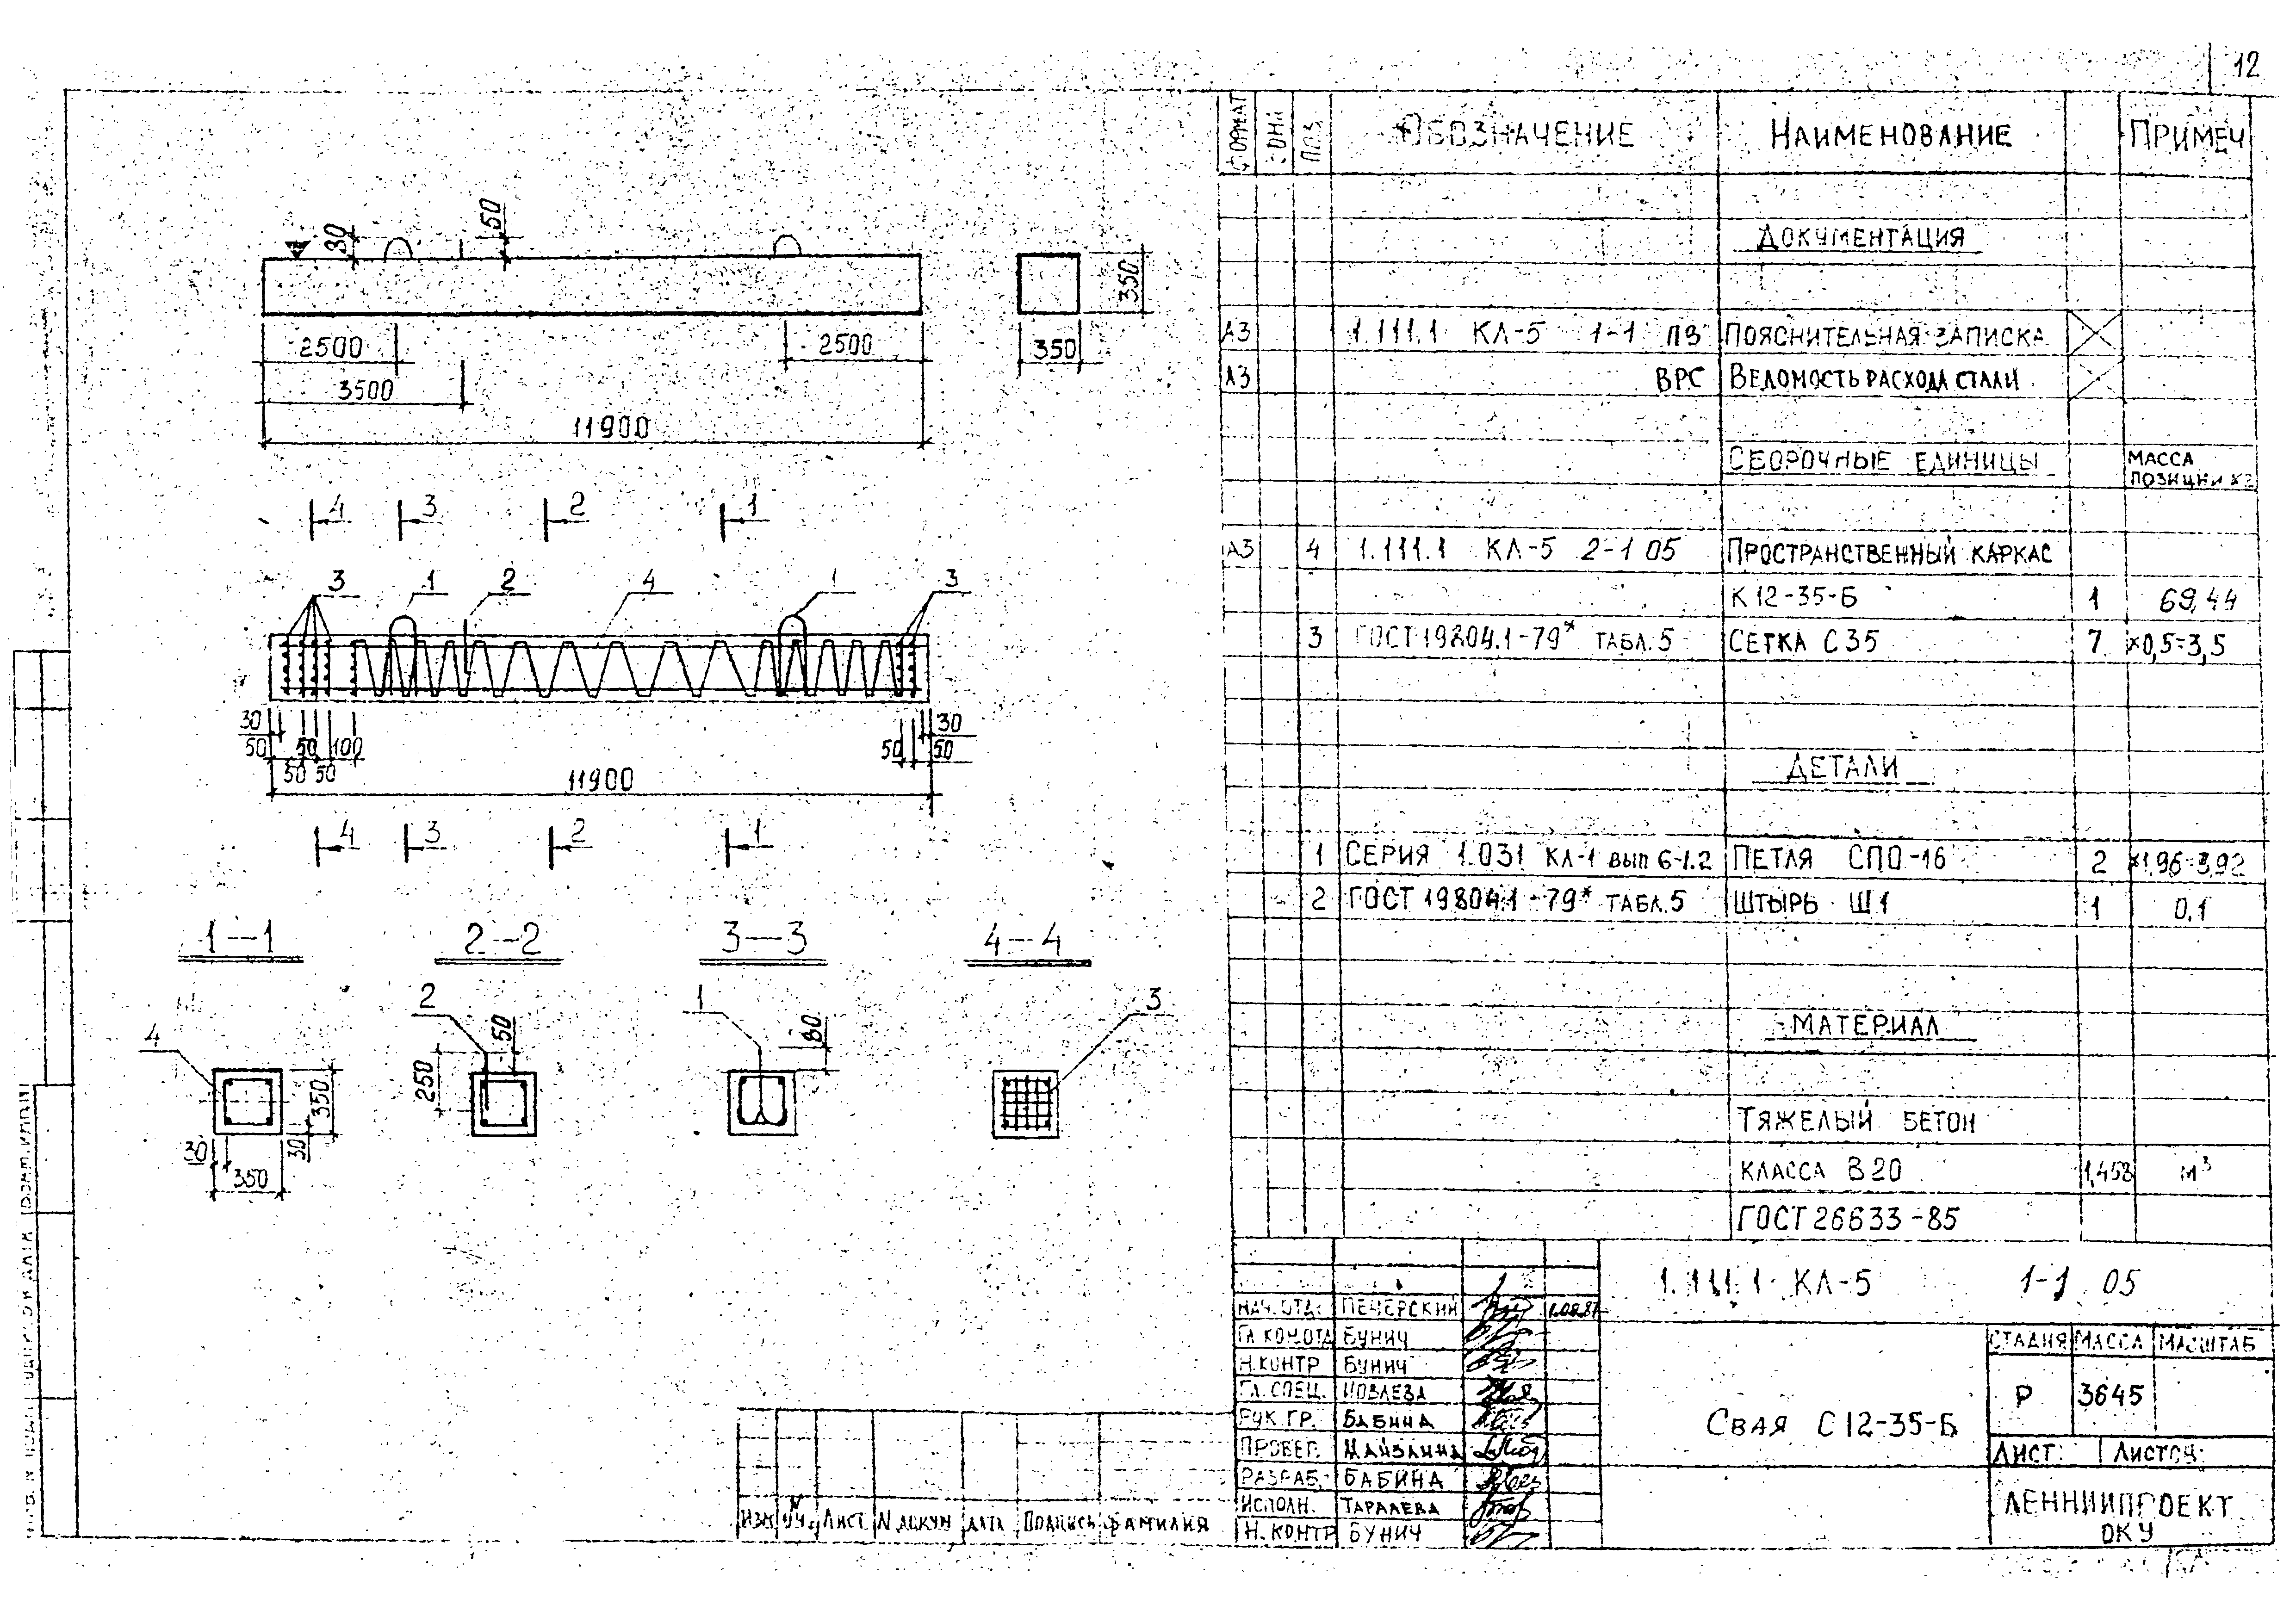 12
ФОРМАТ ЗОНА ПОЗ. ОБОЗНАЧЕНИЕ НАИМЕНОВАНИЕ ПРИМЕЧ
ДОКУМЕНТАЦИЯ
А3 1.111.1 КЛ-5 1-1 ПЗ ПОЯСНИТЕЛЬНАЯ ЗАПИСКА
А3 ВРС ВЕДОМОСТЬ РАСХОДА СТАЛИ
СБОРОЧНЫЕ ЕДИНИЦЫ МАССА
ПОЗИЦИИ КГ
А3 4 1.111.1 КЛ-5 2-1 05 ПРОСТРАНСТВЕННЫЙ КАРКАС
К12-35-Б 1 69,44
3 ГОСТ 19804.1-79* ТАБЛ.5 СЕТКА С35 7 ×0,5=3,5
ДЕТАЛИ
1 СЕРИЯ 1.031 КЛ-1 ВЫП 6-1.2 ПЕТЛЯ СПО-16 2 ×1,96=3,92
2 ГОСТ 19804.1-79* ТАБЛ.5 ШТЫРЬ Ш1 1 0,1
МАТЕРИАЛ
ТЯЖЕЛЫЙ БЕТОН
КЛАССА В20 1,458 М³
ГОСТ 26633-85
30 50
350
2500 2500 350
3500
11900
4 3 2 1
3 1 2 4 1 3
30 30
50 50 100 50 50
50 50
11900
4 3 2 1
1—1 2—2 3—3 4—4
4 2 1 3
50 80
350 250
30 30
350
1.111.1 КЛ-5 1-1 05
НАЧ. ОТД. ПЕЧЕРСКИЙ
ГЛ.КОН.ОТД БУНИЧ
Н.КОНТР БУНИЧ
ГЛ. СПЕЦ.
РУК. ГР. БАБИНА
ПРОВЕР.
РАЗРАБ. БАБИНА
ИСПОЛН. ТАРАЛЕВА
Н. КОНТР БУНИЧ
СВАЯ С12-35-Б
СТАДИЯ МАССА МАСШТАБ
Р 3645
ЛИСТ ЛИСТОВ
ЛЕННИИПРОЕКТ
ОКУ
ИЗМ ЛИСТ N ДОКУМ ДАТА ПОДПИСЬ ФАМИЛИЯ